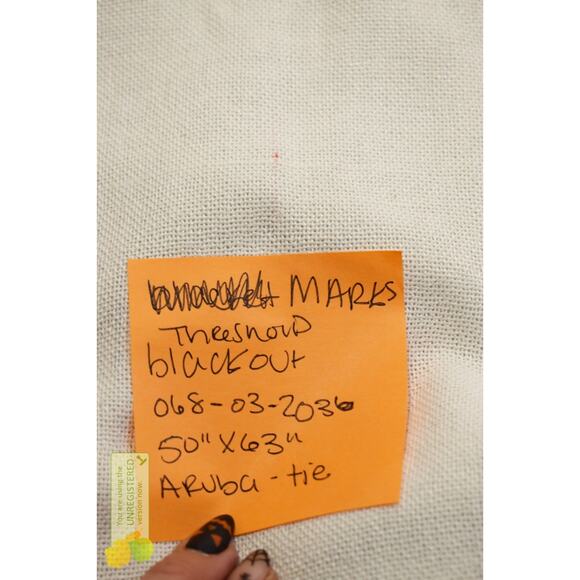 MARKS
Threshold
blackout
068-03-2036
50" X 63"
ARUba - tie
You are using the
UNREGISTERED
version now.